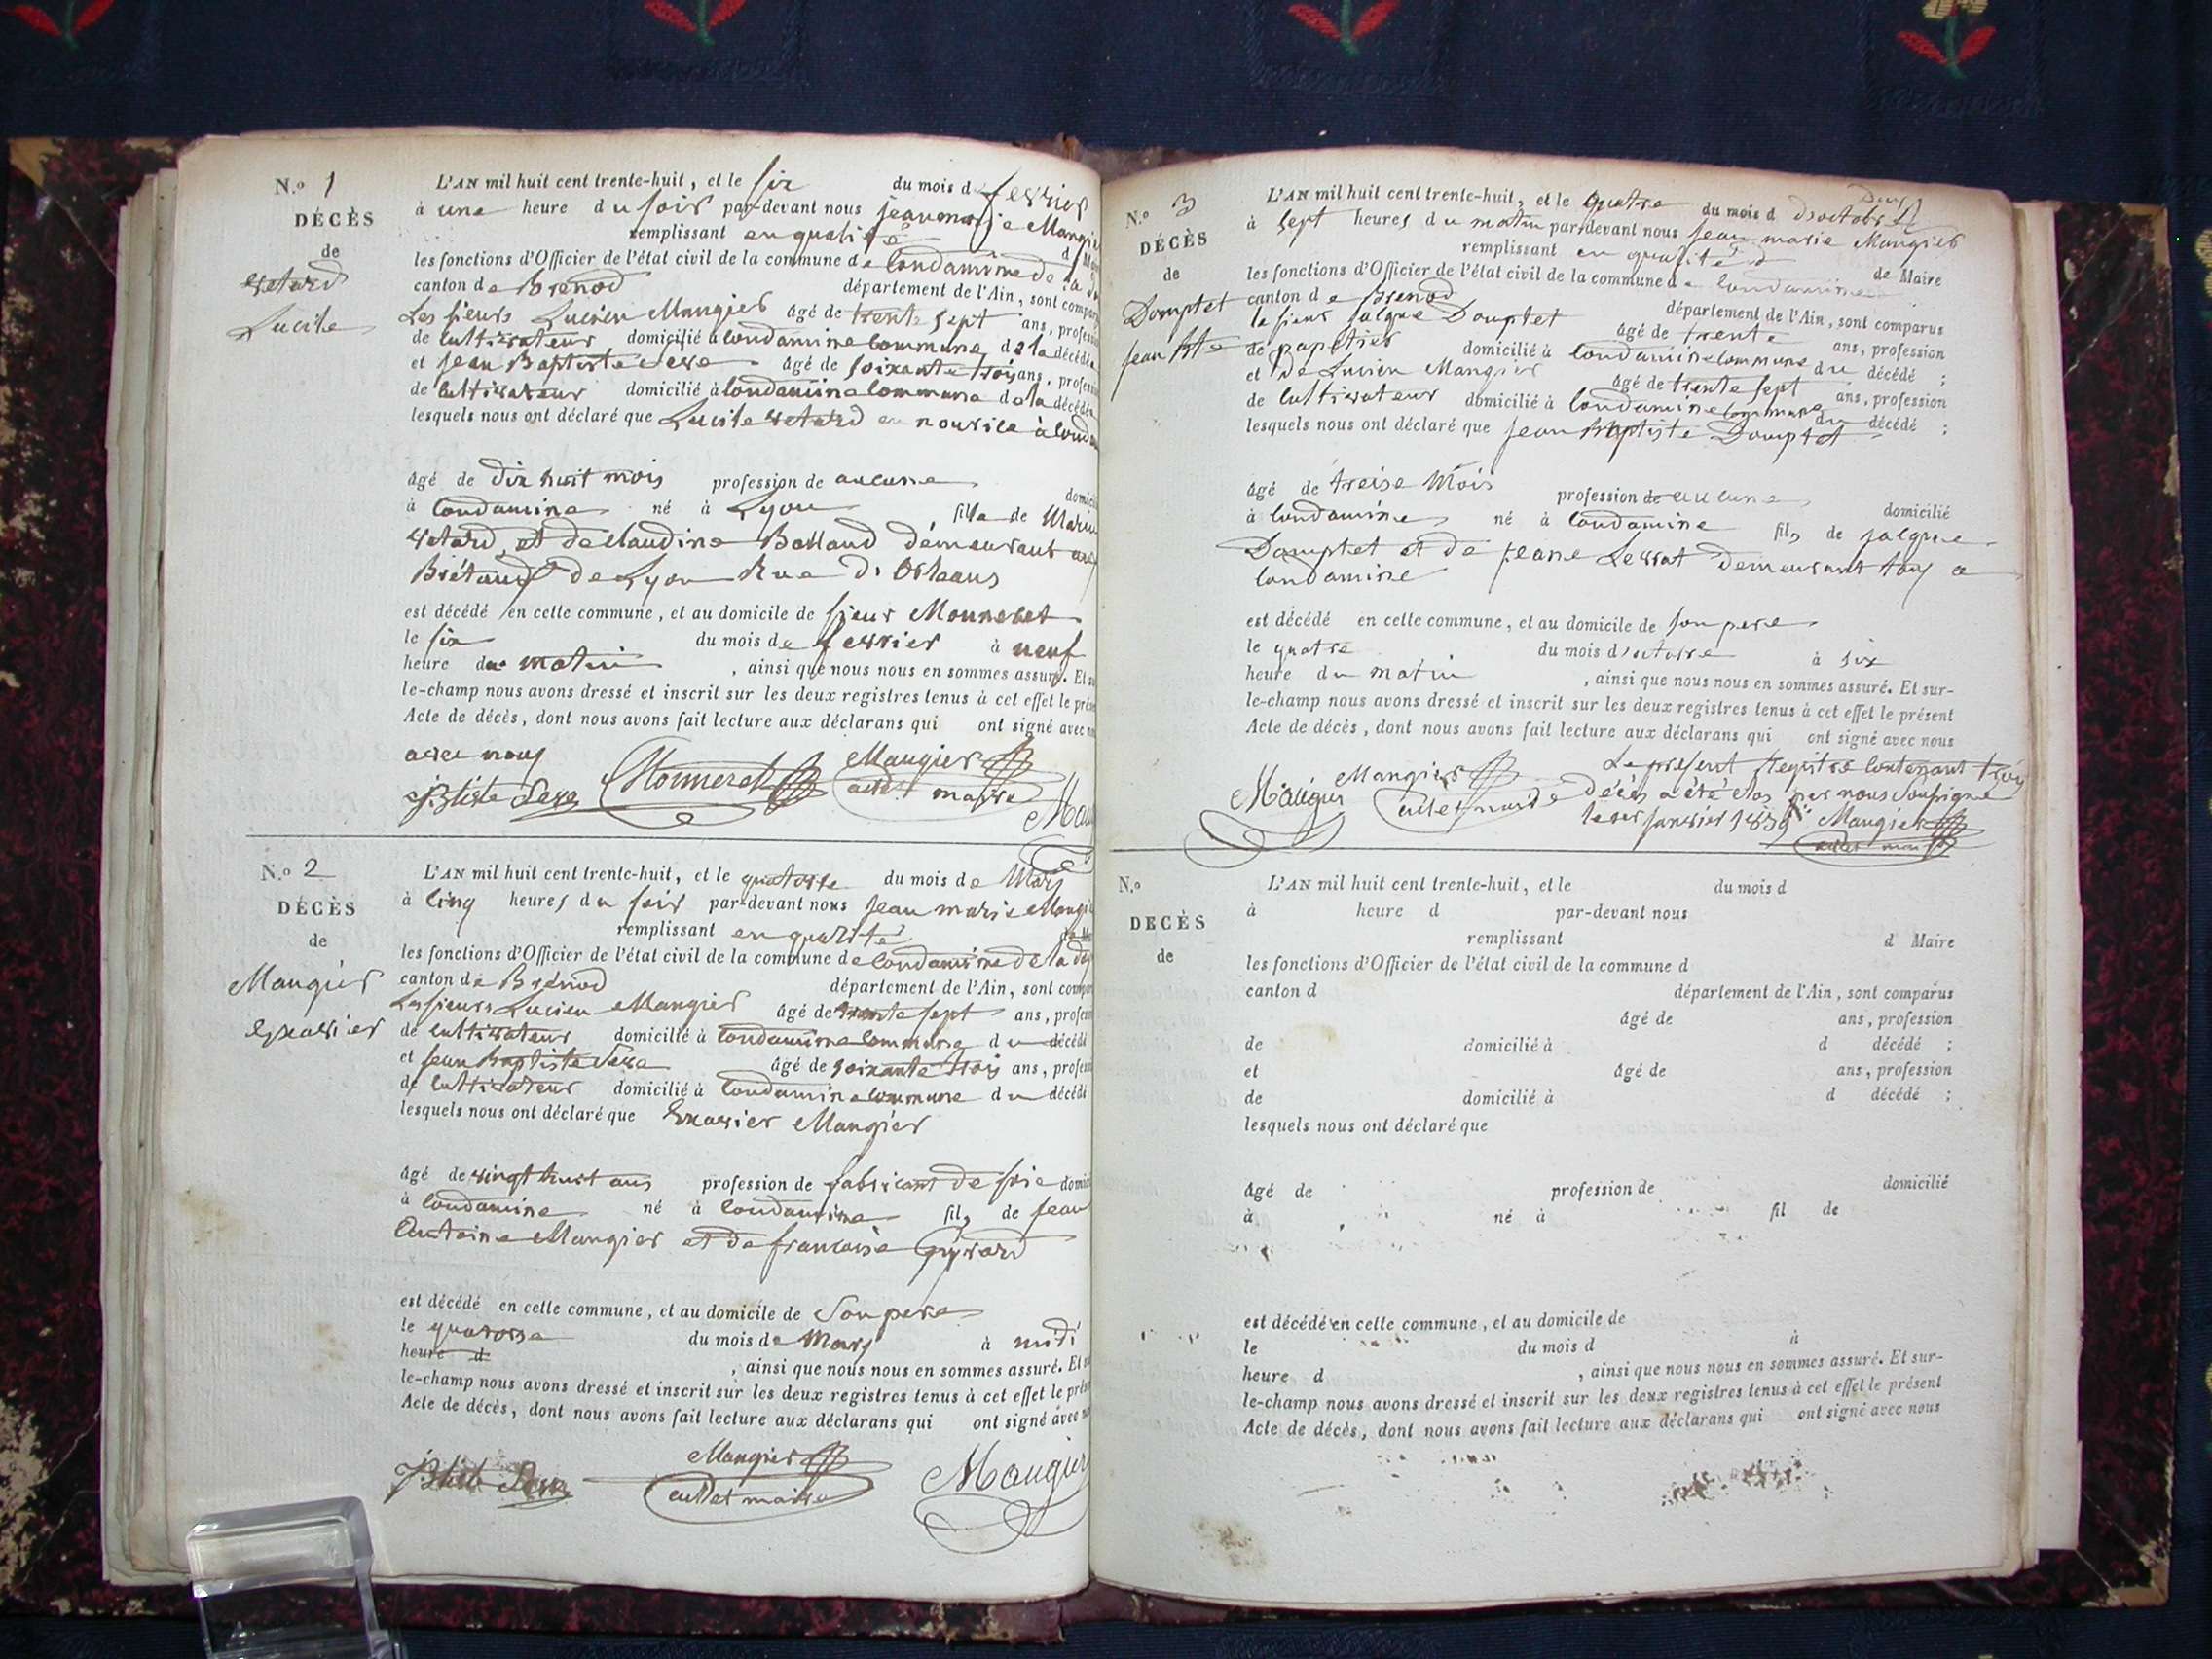 N.o 1
DÉCÈS
de
Lucile
L'AN mil huit cent trente-huit, et le six du mois de fevrier
à une heure du soir par-devant nous jean marie Mangier
remplissant en qualité d Ma
les fonctions d'Officier de l'état civil de la commune de Condamine de la
canton de Brenod département de l'Ain, sont compar
Les sieurs Lucien Mangier âgé de trente sept ans, profession
de cultivateur domicilié à Condamine commune de la décédée
et jean Baptiste âgé de soixante trois ans, profession
de cultivateur domicilié à Condamine commune de la décédée
lesquels nous ont déclaré que Lucile en nourice à Cond
âgé de dix huit mois profession de aucune domicil
à Condamine né à Lyon fille de
et de Claudine Balland demeurant
de Lyon Rue d'Orleans
est décédé en cette commune, et au domicile de sieur Monneret
le six du mois de fevrier à neuf
heure du matin, ainsi que nous nous en sommes assuré. Et su
le-champ nous avons dressé et inscrit sur les deux registres tenus à cet effet le prése
Acte de décès, dont nous avons fait lecture aux déclarans qui ont signé avec no
avec nous Mangier
JBtiste Monneret maire
N.o 2
DÉCÈS
de
Mangier
Exavier
L'AN mil huit cent trente-huit, et le quatorse du mois de Mars
à cinq heures du soir par-devant nous jean marie Mangi
remplissant en qualité
les fonctions d'Officier de l'état civil de la commune de Condamine de la
canton de Brénod département de l'Ain, sont compar
Les sieurs Lucien Mangier âgé de trente sept ans, profess
de cultivateur domicilié à Condamine commune du décédé
et jean Baptiste âgé de soixante trois ans, profess
de cultivateur domicilié à Condamine commune du décédé
lesquels nous ont déclaré que Exavier Mangier
âgé de vingt huit ans profession de fabricant de soie domici
à Condamine né à Condamine fils de jean
Antoine Mangier et de francoise
est décédé en cette commune, et au domicile de Son pere
le quatorse du mois de Mars à midi
heure d, ainsi que nous nous en sommes assuré. Et su
le-champ nous avons dressé et inscrit sur les deux registres tenus à cet effet le prése
Acte de décès, dont nous avons fait lecture aux déclarans qui ont signé avec no
JBtiste Mangier Mangier
maire
N.o 3
DÉCÈS
de
Domptet
jean Bte
L'AN mil huit cent trente-huit, et le quatre du mois d d'octobre
à sept heures du matin par-devant nous jean marie Mangier
remplissant en qualité de Maire
les fonctions d'Officier de l'état civil de la commune de Condamine
canton de Brenod département de l'Ain, sont comparus
le sieur jalque Domptet âgé de trente ans, profession
de papetier domicilié à Condamine commune du décédé ;
et de Lucien Mangier âgé de trente sept ans, profession
de cultivateur domicilié à Condamine commune du décédé ;
lesquels nous ont déclaré que jean Baptiste Domptet
âgé de treise Mois profession de aucune domicilié
à Condamine né à Condamine fils de jalque
Domptet et de jeane demeurant tous a
Condamine
est décédé en cette commune, et au domicile de son pere
le quatre du mois d'octobre à six
heure du matin, ainsi que nous nous en sommes assuré. Et sur-
le-champ nous avons dressé et inscrit sur les deux registres tenus à cet effet le présent
Acte de décès, dont nous avons fait lecture aux déclarans qui ont signé avec nous
Mangier Mangier Le present Registre Contenant trois
décès a été clos par nous Soussigné
le 1er janvier 1839 Mangier
N.o
DECÈS
de
L'AN mil huit cent trente-huit, et le du mois d
à heure d par-devant nous
remplissant d Maire
les fonctions d'Officier de l'état civil de la commune d
canton d département de l'Ain, sont comparus
âgé de ans, profession
de domicilié à d décédé ;
et âgé de ans, profession
de domicilié à d décédé ;
lesquels nous ont déclaré que
âgé de profession de domicilié
à né à fil de
est décédé en cette commune, et au domicile de
le du mois d à
heure d, ainsi que nous nous en sommes assuré. Et sur-
le-champ nous avons dressé et inscrit sur les deux registres tenus à cet effet le présent
Acte de décès, dont nous avons fait lecture aux déclarans qui ont signé avec nous